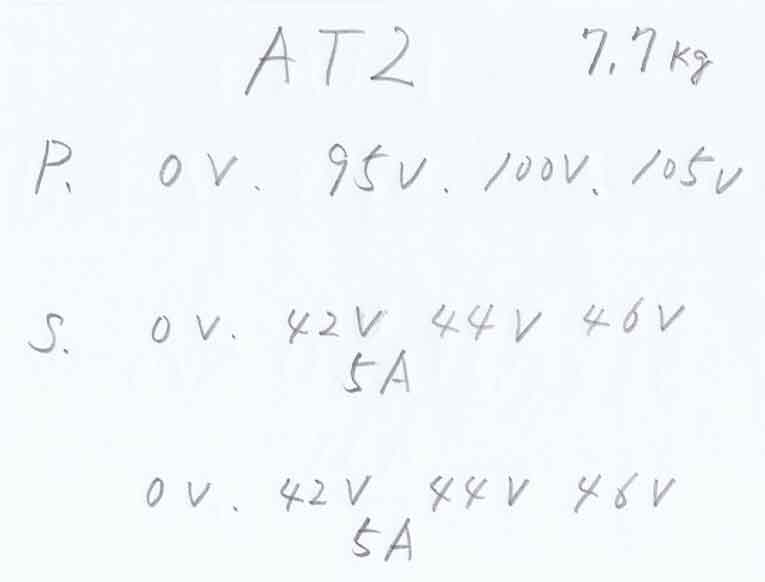 AT2 7.7kg
P. 0V. 95V. 100V. 105V
S. 0V. 42V 44V 46V
5A
0V. 42V 44V 46V
5A